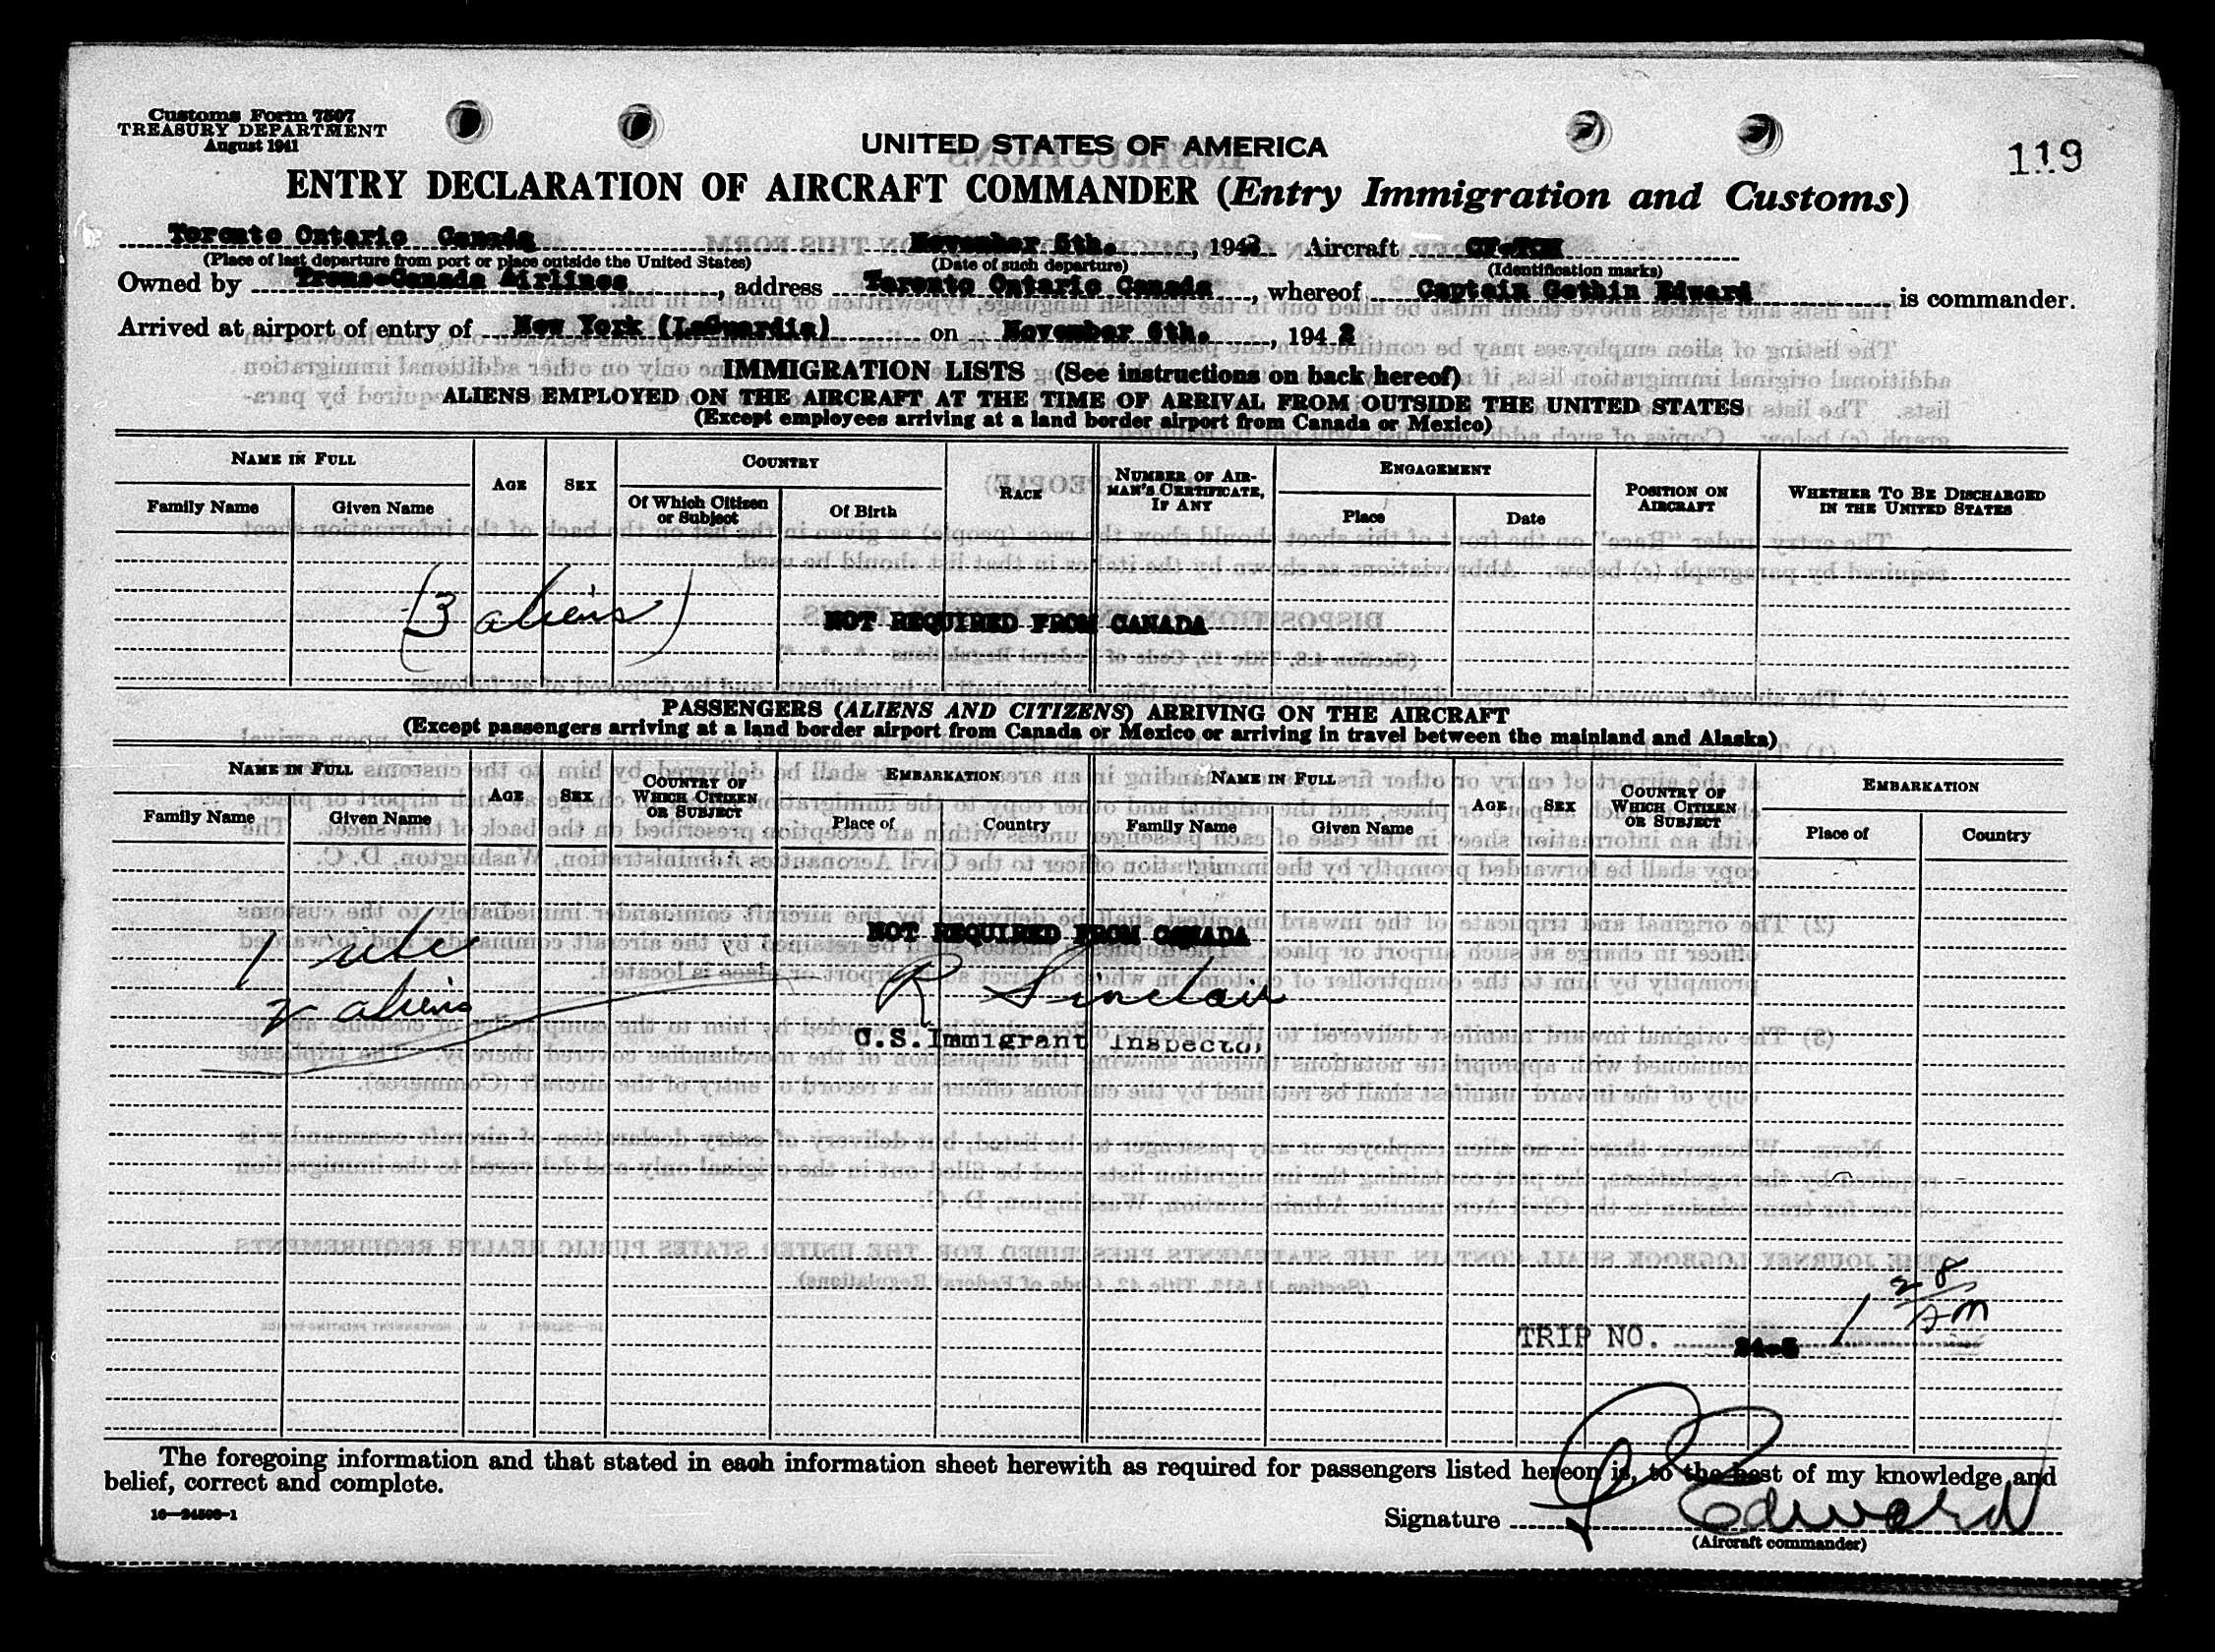 Customs Form 7507
TREASURY DEPARTMENT
August 1941
119
UNITED STATES OF AMERICA
ENTRY DECLARATION OF AIRCRAFT COMMANDER (Entry Immigration and Customs)
Toronto Ontario Canada November 5th. , 1942 Aircraft CF-TCM
(Place of last departure from port or place outside the United States) (Date of such departure) (Identification marks)
Owned by Trans-Canada Airlines , address Toronto Ontario Canada , whereof Captain Gethin Edward is commander.
Arrived at airport of entry of New York (LaGuardia) on November 6th. , 1942
IMMIGRATION LISTS (See instructions on back hereof)
ALIENS EMPLOYED ON THE AIRCRAFT AT THE TIME OF ARRIVAL FROM OUTSIDE THE UNITED STATES
(Except employees arriving at a land border airport from Canada or Mexico)
NAME IN FULL AGE SEX COUNTRY RACE NUMBER OF AIRMAN'S CERTIFICATE, IF ANY ENGAGEMENT POSITION ON AIRCRAFT WHETHER TO BE DISCHARGED IN THE UNITED STATES
Family Name Given Name Of Which Citizen or Subject Of Birth Place Date
(3 aliens) NOT REQUIRED FROM CANADA
PASSENGERS (ALIENS AND CITIZENS) ARRIVING ON THE AIRCRAFT
(Except passengers arriving at a land border airport from Canada or Mexico or arriving in travel between the mainland and Alaska)
NAME IN FULL AGE SEX COUNTRY OF WHICH CITIZEN OR SUBJECT EMBARKATION NAME IN FULL AGE SEX COUNTRY OF WHICH CITIZEN OR SUBJECT EMBARKATION
Family Name Given Name Place of Country Family Name Given Name Place of Country
1 usc NOT REQUIRED FROM CANADA
2 aliens R Sinclair
U.S. Immigrant Inspector
1 28/AM
TRIP NO. 24-5
The foregoing information and that stated in each information sheet herewith as required for passengers listed hereon is, to the best of my knowledge and
belief, correct and complete.
Signature Edward
(Aircraft commander)